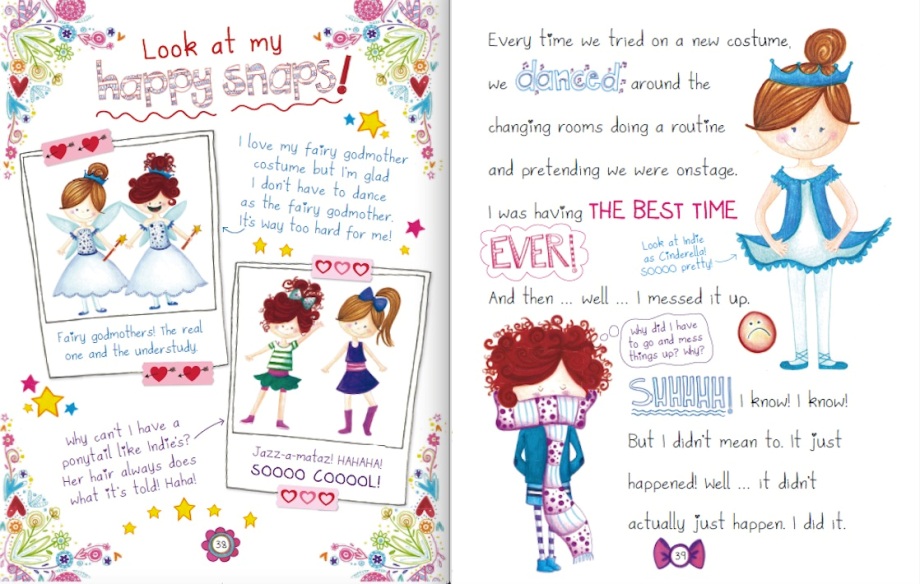 Look at my
happy snaps!
I love my fairy godmother
costume but I'm glad
I don't have to dance
as the fairy godmother.
It's way too hard for me!
Fairy godmothers! The real
one and the understudy.
Why can't I have a
ponytail like Indie's?
Her hair always does
what it's told! Haha!
Jazz-a-mataz! HAHAHA!
SOOOO COOOOL!
38
Every time we tried on a new costume,
we danced around the
changing rooms doing a routine
and pretending we were onstage.
I was having THE BEST TIME
EVER!
Look at Indie
as Cinderella!
SOOOO pretty!
And then ... well ... I messed it up.
Why did I have
to go and mess
things up? Why?
SHHHHH! I know! I know!
But I didn't mean to. It just
happened! Well ... it didn't
actually just happen. I did it.
39